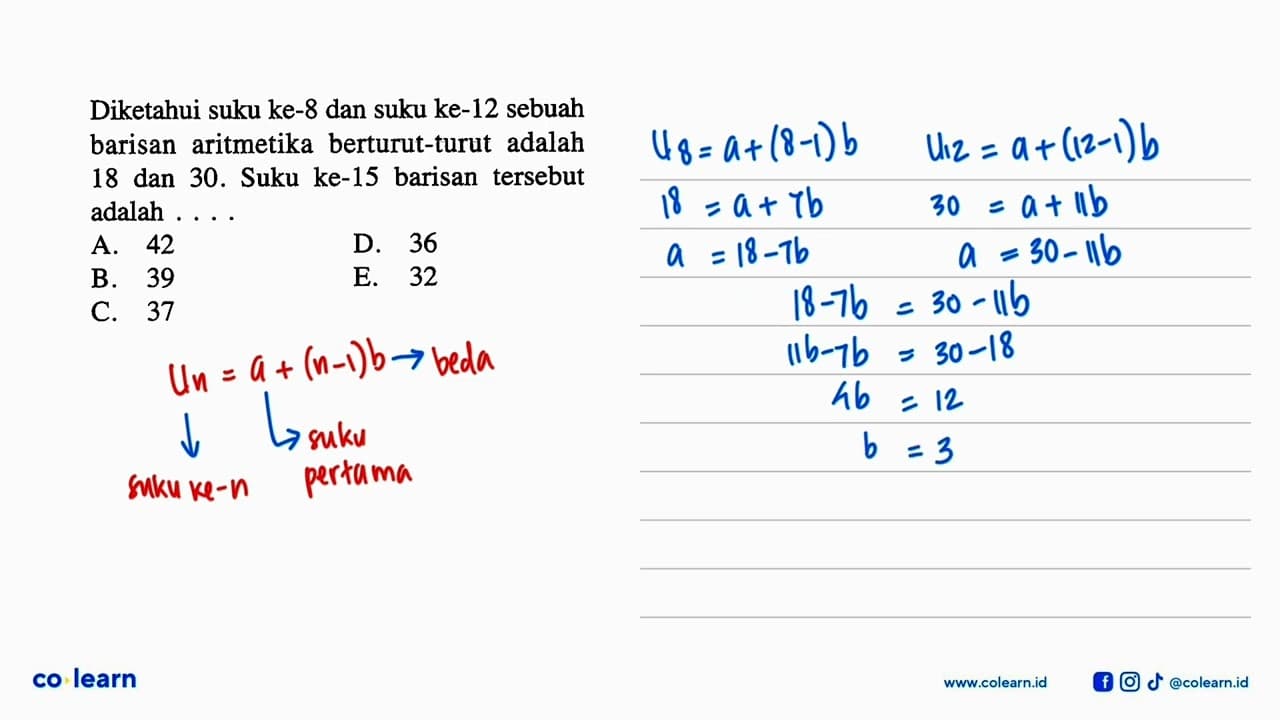 Diketahui suku ke-8 dan suku ke-12 sebuah
barisan aritmetika berturut-turut adalah
18 dan 30. Suku ke-15 barisan tersebut
adalah . . . .
A. 42 D. 36
B. 39 E. 32
C. 37
Un = a + (n-1)b → beda
suku
pertama
suku ke-n
U8 = a + (8-1)b U12 = a + (12-1)b
18 = a + 7b 30 = a + 11b
a = 18 - 7b a = 30 - 11b
18 - 7b = 30 - 11b
11b - 7b = 30 - 18
4b = 12
b = 3
co learn
www.colearn.id @colearn.id